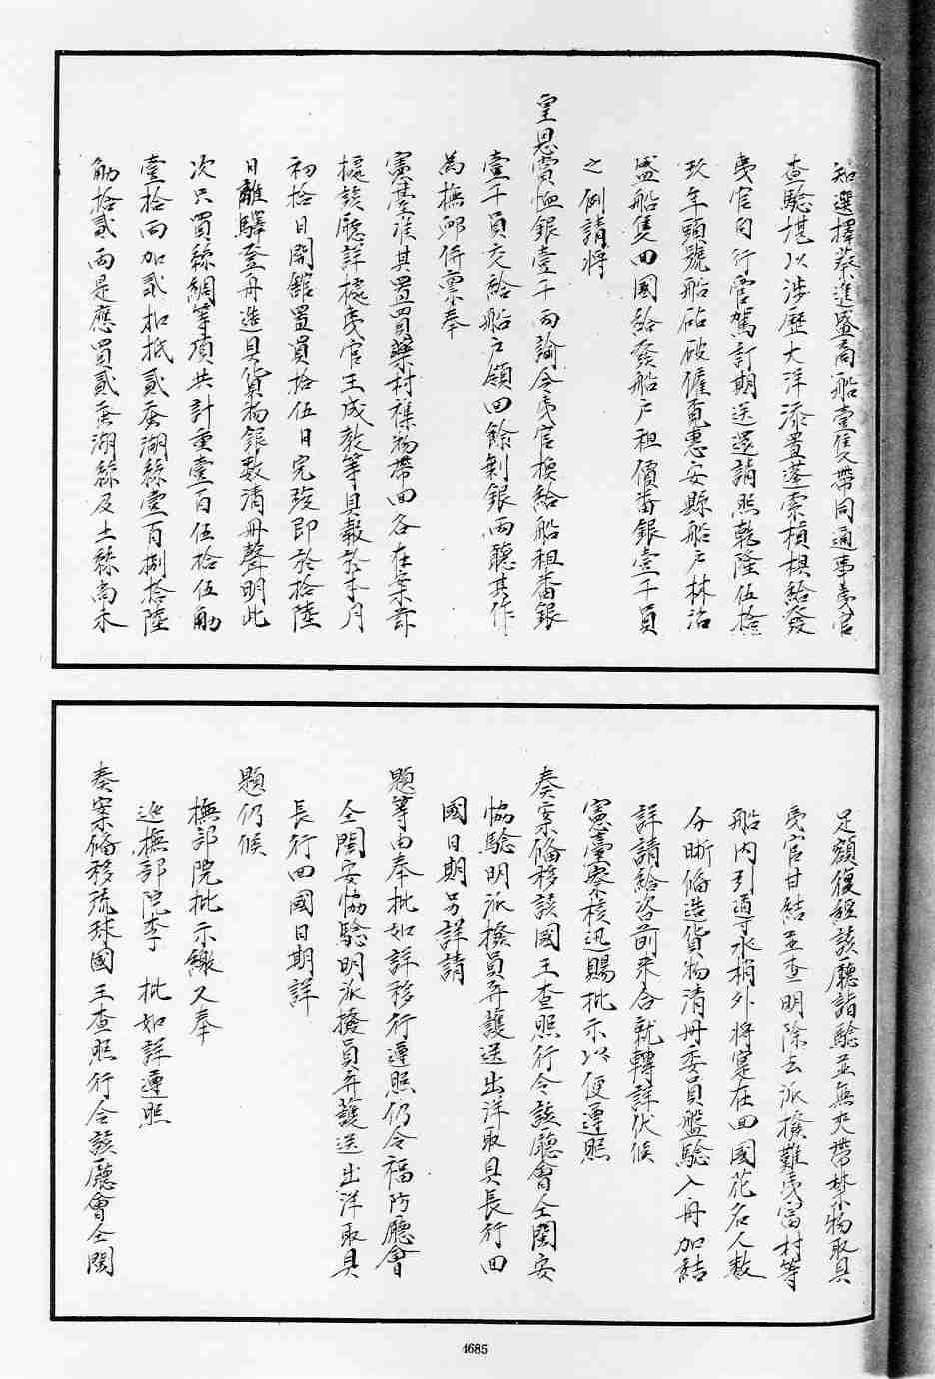 知選擇蔡進盛商船壹隻帶同通事夷官
查驗堪以涉歷大洋添置蓬索槓椇給發
夷官自行官駕訂期送還請照乾隆伍拾
玖年頭號船砧破僱覓惠安縣船戶林治
盛船隻回國給發船戶租價番銀壹千員
之例請將
皇恩賞恤銀壹千兩諭令夷官換給船租番銀
壹千員交給船戶領回餘剩銀兩聽其作
為撫卹併稟奉
憲臺准其置買藥材襍物帶回各在案茲
據該廳詳據夷官王成教等具報於本月
初拾日開館置買拾伍日完竣即於拾陸
日離驛登舟造具貨物銀數清冊聲明此
次只買絲綢等項共計重壹百伍拾伍觔
壹拾兩加貳扣抵貳蚕湖絲壹百捌拾陸
觔拾貳兩是應買貳蚕湖絲及土絲尚未
足額復經該廳詣驗並無夾帶禁物取具
夷官甘結並查明除去派撥難夷富村等
船內引導水梢外將寔在回國花名人數
分晰俻造貨物清冊委員盤驗入冊加結
詳請給咨前來合就轉詳伏候
憲臺察核迅賜批示以便遵照
奏案俻移該國王查照行令該廳會仝閩安
協驗明派撥員弁護送出洋取具長行回
國日期另詳請
題等由奉批如詳移行遵照仍令福防廳會
仝閩安協驗明派撥員弁護送出洋取具
長行回國日期詳
題仍候
撫部院批示繳又奉
巡撫部院李 批如詳遵照
奏案俻移琉球國王查照行令該廳會仝閩
4685